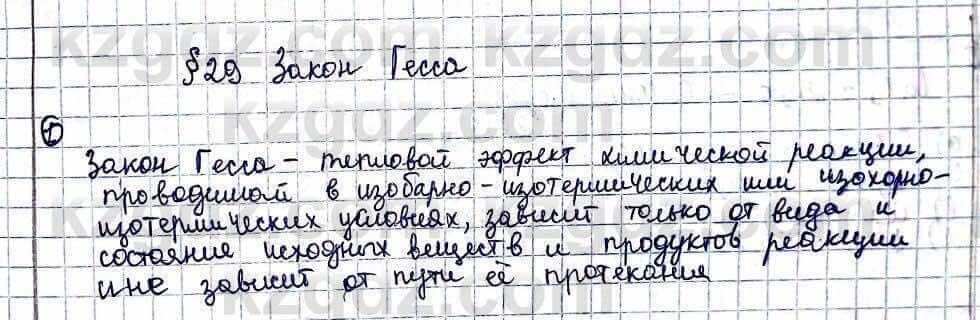 §29 Закон Гесса
①
Закон Гесса - тепловой эффект химической реакции,
проводимой в изобарно-изотермических или изохорно-
изотермических условиях, зависит только от вида и
состояние исходных веществ и продуктов реакции
и не зависит от пути её протекания
kzgdz.com